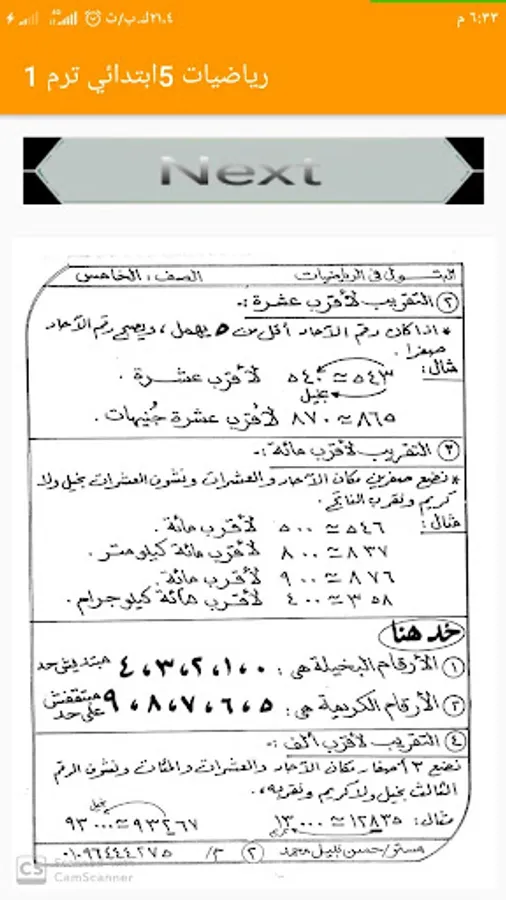 ٦:٣٣ م
٢١.٤ ك.ب/ث
رياضيات 5ابتدائي ترم 1
Next
البتولى فى الرياضيات الصف : الخامس
٢ التقريب لأقرب عشرة :-
* اذا كان رقم الآحاد أقل من ٥ يهمل ، ويصبح رقم الآحاد
صفرا .
مثال: ٥٤٣ ≃ ٥٤٠ لأقرب عشرة .
بخيل
٨٦٥ ≃ ٨٧٠ لأقرب عشرة جُنيهات .
٣ التقريب لأقرب مائة :-
* نضع صفرين مكان الآحاد والعشرات ونشوف العشرات بخيل ولا
كريم ونقرب الناتج .
مثال: ٥٤٦ ≃ ٥٠٠ لأقرب مائة .
٨٣٧ ≃ ٨٠٠ لأقرب مائة كيلومتر .
٨٧٦ ≃ ٩٠٠ لأقرب مائة .
٣٥٨ ≃ ٤٠٠ لأقرب مائة كيلوجرام .
خد هنا
١ الأرقام البخيلة هى : ٠ ، ١ ، ٢ ، ٣ ، ٤ مبتديش حد
٢ الأرقام الكريمة هى : ٥ ، ٦ ، ٧ ، ٨ ، ٩ مبتقفش على حد
٤ التقريب لأقرب ألف :-
نضع ٣ أصفار مكان الآحاد والعشرات والمئات ونشوف الرقم
الثالث بخيل ولا كريم ونقربه .
مثال: ١٢٨٣٥ ≃ ١٣٠٠٠ ٩٣٢٦٧ ≃ ٩٣٠٠٠
كريم بخيل
مستر/ حسن نبيل محمد ٢ م/ ٠١٠٩٦٤٤٤٢٧٥
CS CamScanner